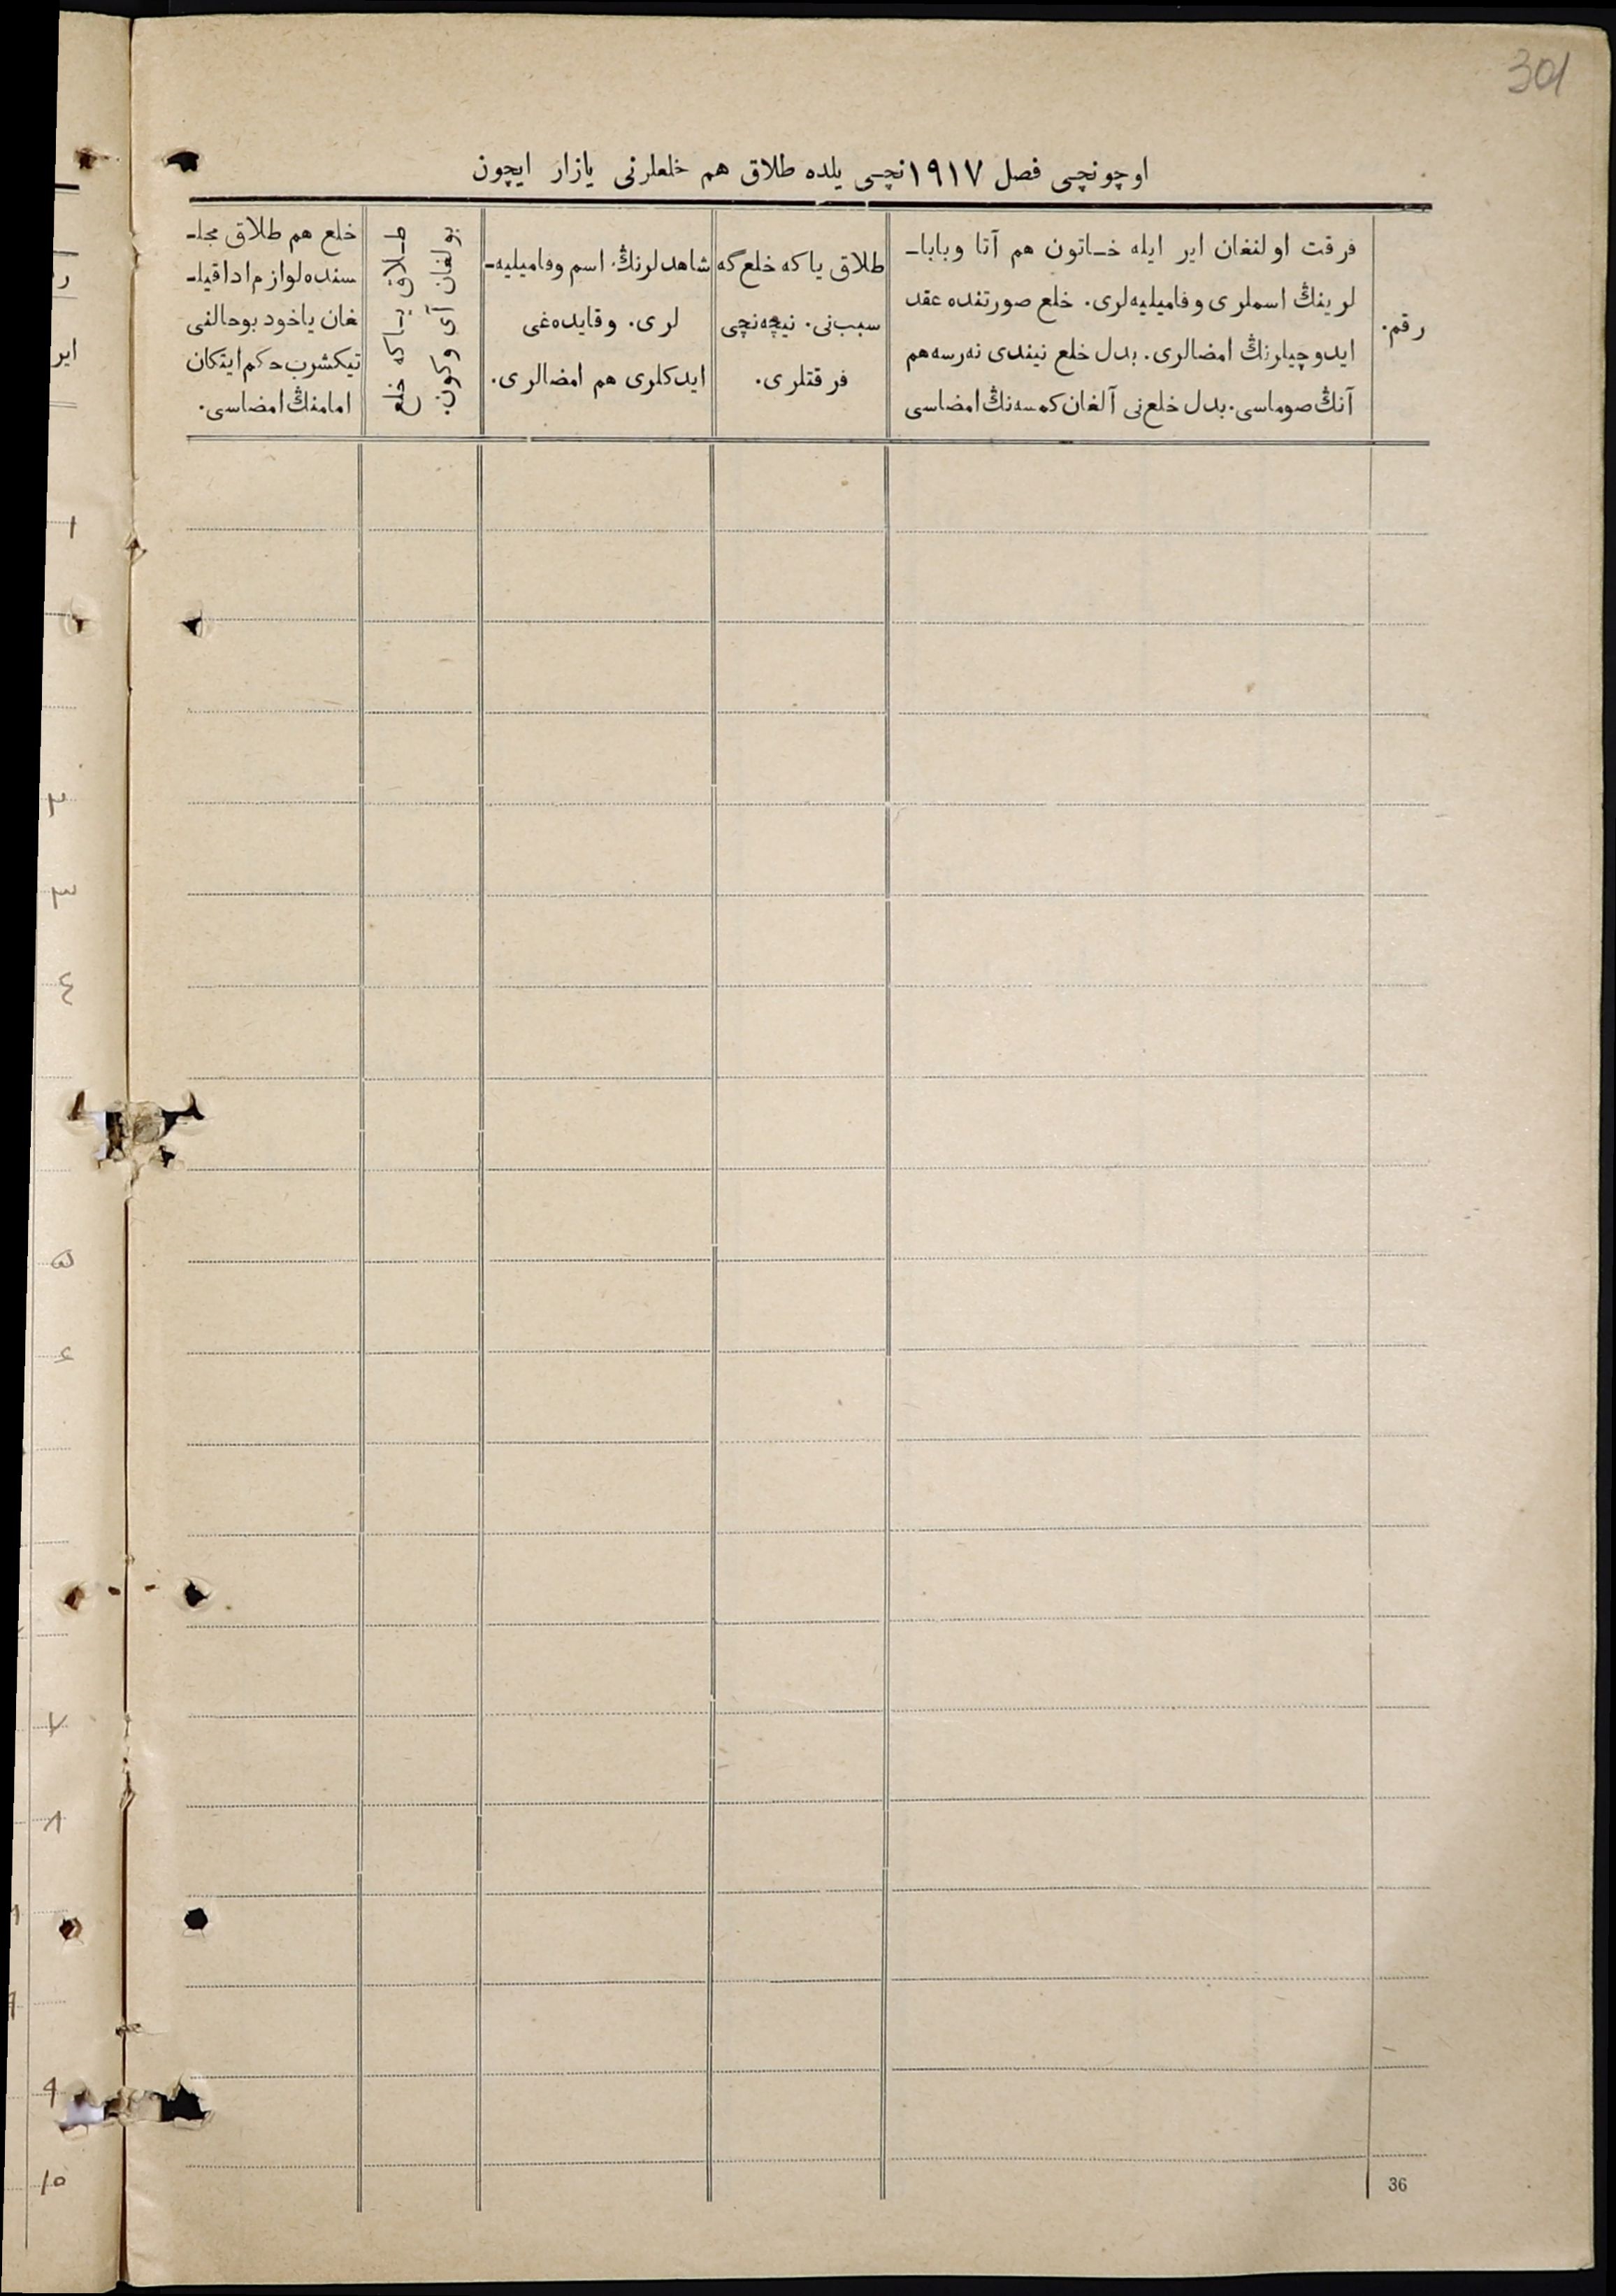 301
اوچونچی فصل ١٩١٧نچی يلده طلاق هم خلعلرنی يازار ايچون
رقم.
فرقت اولنغان اير ايله خـاتون هم آتا وبابا-
لرينڭ اسملری وفاميليه‌لری. خلع صورتنده عقد
ايدوچيلرنڭ امضالری. بدل خلع نيندی نه‌رسه‌هم
آنڭ صوماسی. بدل خلعنی آلغان كمسه‌نڭ امضاسی
طلاق ياكه خلع‌گه
سبب‌نی. نيچه‌نچی
فرقتلری.
شاهدلرنڭ اسم وفاميليه-
لری. وقايده‌غی
ايدكلری هم امضالری.
طـلاق يـاكه خلع
بولغان آی وكون.
خلع هم طلاق مجلـ
سنده‌لوازم‌اداقيلـ
غان ياخود بوحالنی
تيكشرب حكم‌ايتكان
امامنڭ امضاسی.
36
ر
اير
١
٢
٣
٤
۵
٧
٨
٩
١٠